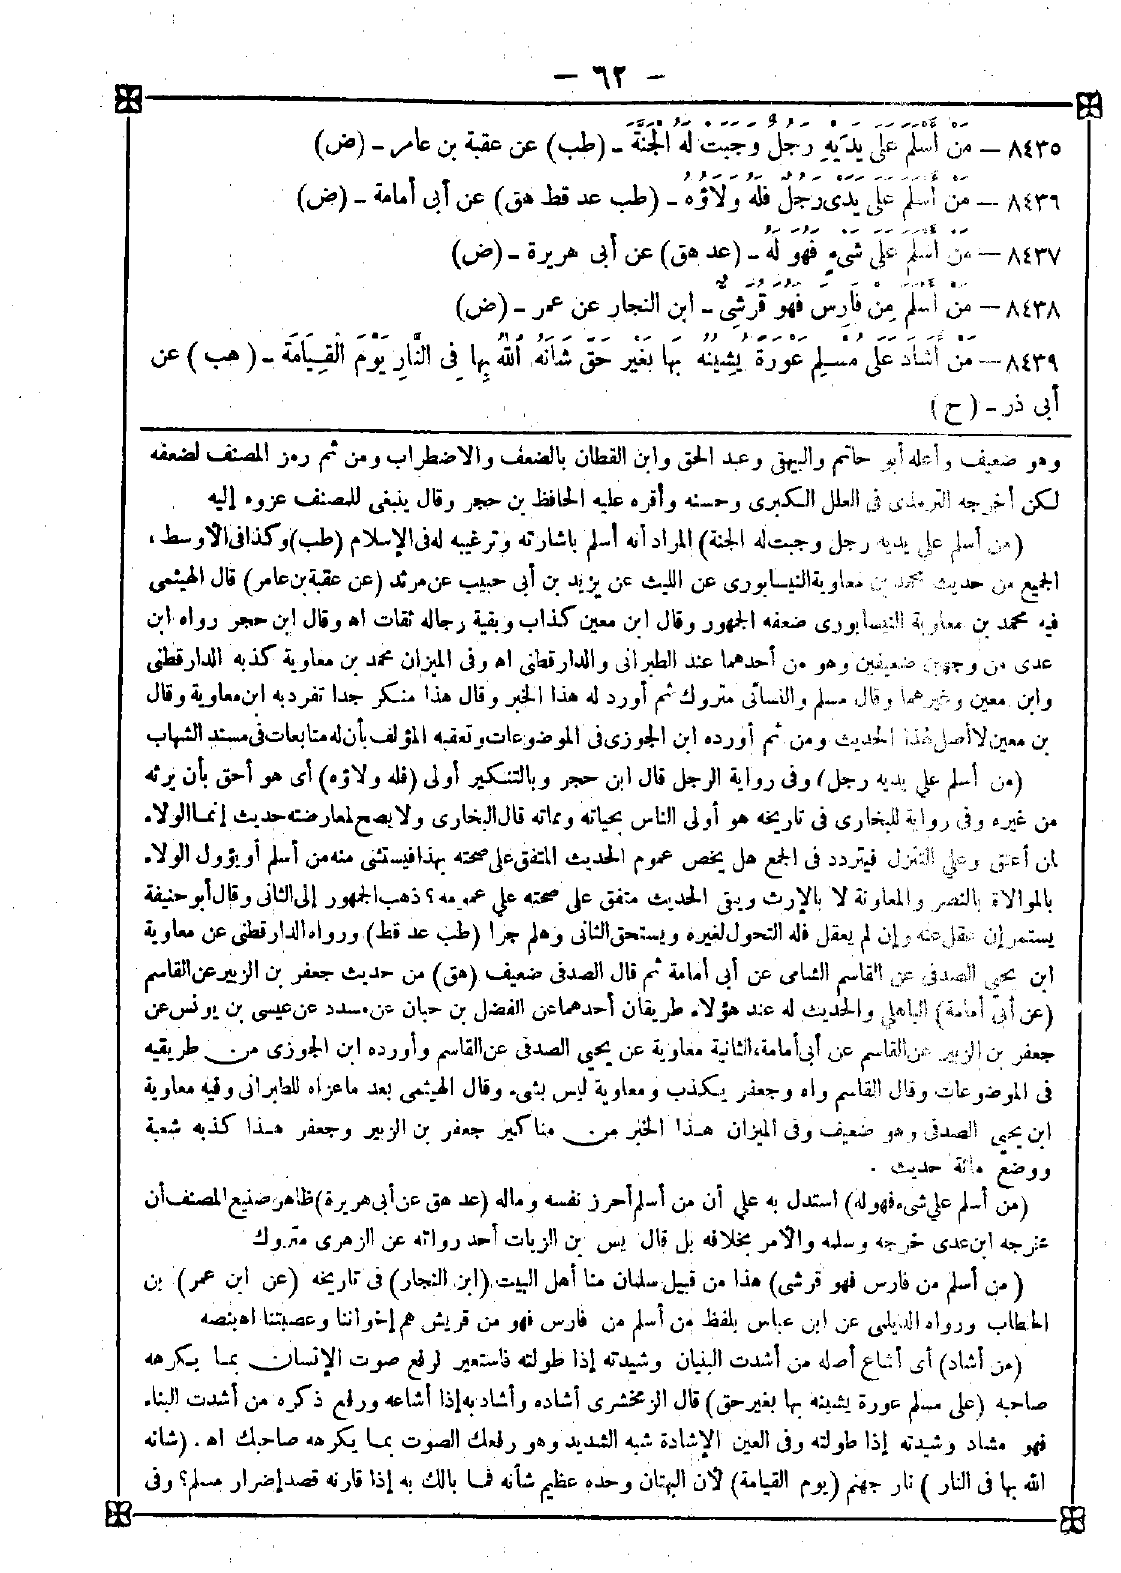 – ٦٢ –
٨٤٣٥ – مَنْ أَسْلَمَ عَلَى يَدَيْهِ رَجُلٌ وَجَبَتْ لَهُ الْجَنَّةُ ـ (طب) عن عقبة بن عامر ـ (ض)
٨٤٣٦ – مَنْ أَسْلَمَ عَلَى يَدَىْ رَجُلٍ فَلَهُ وَلَاؤُهُ ـ (طب عد قط هق) عن أبى أمامة ـ (ض)
٨٤٣٧ – مَنْ أَسْلَمَ عَلَى شَىْءٍ فَهُوَ لَهُ ـ (عد هق) عن أبى هريرة ـ (ض)
٨٤٣٨ – مَنْ أَسْلَمَ مِنْ فَارِسَ فَهُوَ قُرَشِىٌّ ـ ابن النجار عن عمر ـ (ض)
٨٤٣٩ – مَنْ أَشَادَ عَلَى مُسْلِمٍ عَوْرَةً يُشِينُهُ بِهَا بِغَيْرِ حَقٍّ شَانَهُ اللّٰهُ بِهَا فِى النَّارِ يَوْمَ الْقِيَامَةِ ـ (هب) عن
أبى ذر ـ (ح)
وهو ضعيف وأعله أبو حاتم والبيهقى وعبد الحق وابن القطان بالضعف والاضطراب ومن ثم رمز المصنف لضعفه
لكن أخرجه الترمذى فى العلل الكبرى وحسنه وأقره عليه الحافظ بن حجر وقال ينبغى للمصنف عزوه إليه
(من أسلم على يديه رجل وجبت له الجنة) المراد أنه أسلم باشارته وترغيبه له فى الإسلام (طب) وكذا فى الأوسط ،
الجميع من حديث محمد بن معاوية النيسابورى عن الليث عن يزيد بن أبى حبيب عن مرثد (عن عقبة بن عامر) قال الهيثمى
فيه محمد بن معاوية النيسابورى ضعفه الجمهور وقال ابن معين كذاب وبقية رجاله ثقات اه وقال ابن حجر رواه ابن
عدى من وجهين ضعيفين وهو من أحدهما عند الطبرانى والدارقطنى اه وفى الميزان محمد بن معاوية كذبه الدارقطنى
وابن معين وغيرهما وقال مسلم والنسائى متروك ثم أورد له هذا الخبر وقال هذا منكر جدا تفرد به ابن معاوية وقال
بن معين لا أصل لهذا الحديث ومن ثم أورده ابن الجوزى فى الموضوعات وتعقبه المؤلف بأن له متابعات فى مسند الشهاب
(من أسلم على يديه رجل) وفى رواية الرجل قال ابن حجر وبالتنكير أولى (فله ولاؤه) أى هو أحق بأن يرثه
من غيره وفى رواية للبخارى فى تاريخه هو أولى الناس بحياته ومماته قال البخارى ولا يصح لمعارضته حديث إنما الولاء
لمن أعتق وعلى التنزل فيتردد فى الجمع هل يخص عموم الحديث المتفق على صحته بهذا فيستثنى منه من أسلم أو يؤول الولاء
بالموالاة بالنصر والمعاونة لا بالإرث ويبقى الحديث متفق على صحته على عمومه؟ ذهب الجمهور إلى الثانى وقال أبو حنيفة
يستمر إن عقل عنه وإن لم يعقل فله التحول لغيره ويستحق الثانى وهلم جرا (طب عد قط) ورواه الدارقطنى عن معاوية
ابن يحيى الصدفى عن القاسم الشامى عن أبى أمامة ثم قال الصدفى ضعيف (هق) من حديث جعفر بن الزبير عن القاسم
(عن أبى أمامة) الباهلى والحديث له عند هؤلاء طريقان أحدهما عن الفضل بن حبان عن مسدد عن عيسى بن يونس عن
جعفر بن الزبير عن القاسم عن أبى أمامة، الثانية معاوية عن يحيى الصدفى عن القاسم وأورده ابن الجوزى من طريقيه
فى الموضوعات وقال القاسم واه وجعفر يكذب ومعاوية ليس بشىء وقال الهيثمى بعد ما عزاه للطبرانى وفيه معاوية
ابن يحيى الصدفى وهو ضعيف وفى الميزان هذا الخبر من مناكير جعفر بن الزبير وجعفر هذا كذبه شعبة
ووضع مائة حديث .
(من أسلم على شىء فهو له) استدل به على أن من أسلم أحرز نفسه وماله (عد هق عن أبى هريرة) ظاهر صنيع المصنف أن
مخرجه ابن عدى خرجه وسلمه والأمر بخلافه بل قال يس بن الزيات أحد رواته عن الزهرى متروك
(من أسلم من فارس فهو قرشى) هذا من قبيل سلمان منا أهل البيت (ابن النجار) فى تاريخه (عن ابن عمر) بن
الخطاب ورواه الديلمى عن ابن عباس بلفظ من أسلم من فارس فهو من قريش هم إخواننا وعصبتنا اه بنصه
(من أشاد) أى أشاع أصله من أشدت البنيان وشيدته إذا طولته فاستعير لرفع صوت الإنسان بما يكرهه
صاحبه (على مسلم عورة يشينه بها بغير حق) قال الزمخشرى أشاده وأشاد به إذا أشاعه ورفع ذكره من أشدت البناء
فهو مشاد وشيدته إذا طولته وفى العين الإشادة شبه الشديد وهو رفعك الصوت بما يكرهه صاحبك اه . (شانه
الله بها فى النار) نار جهنم (يوم القيامة) لأن البهتان وحده عظيم شأنه فما بالك به إذا قارنه قصد إضرار مسلم؟ وفى